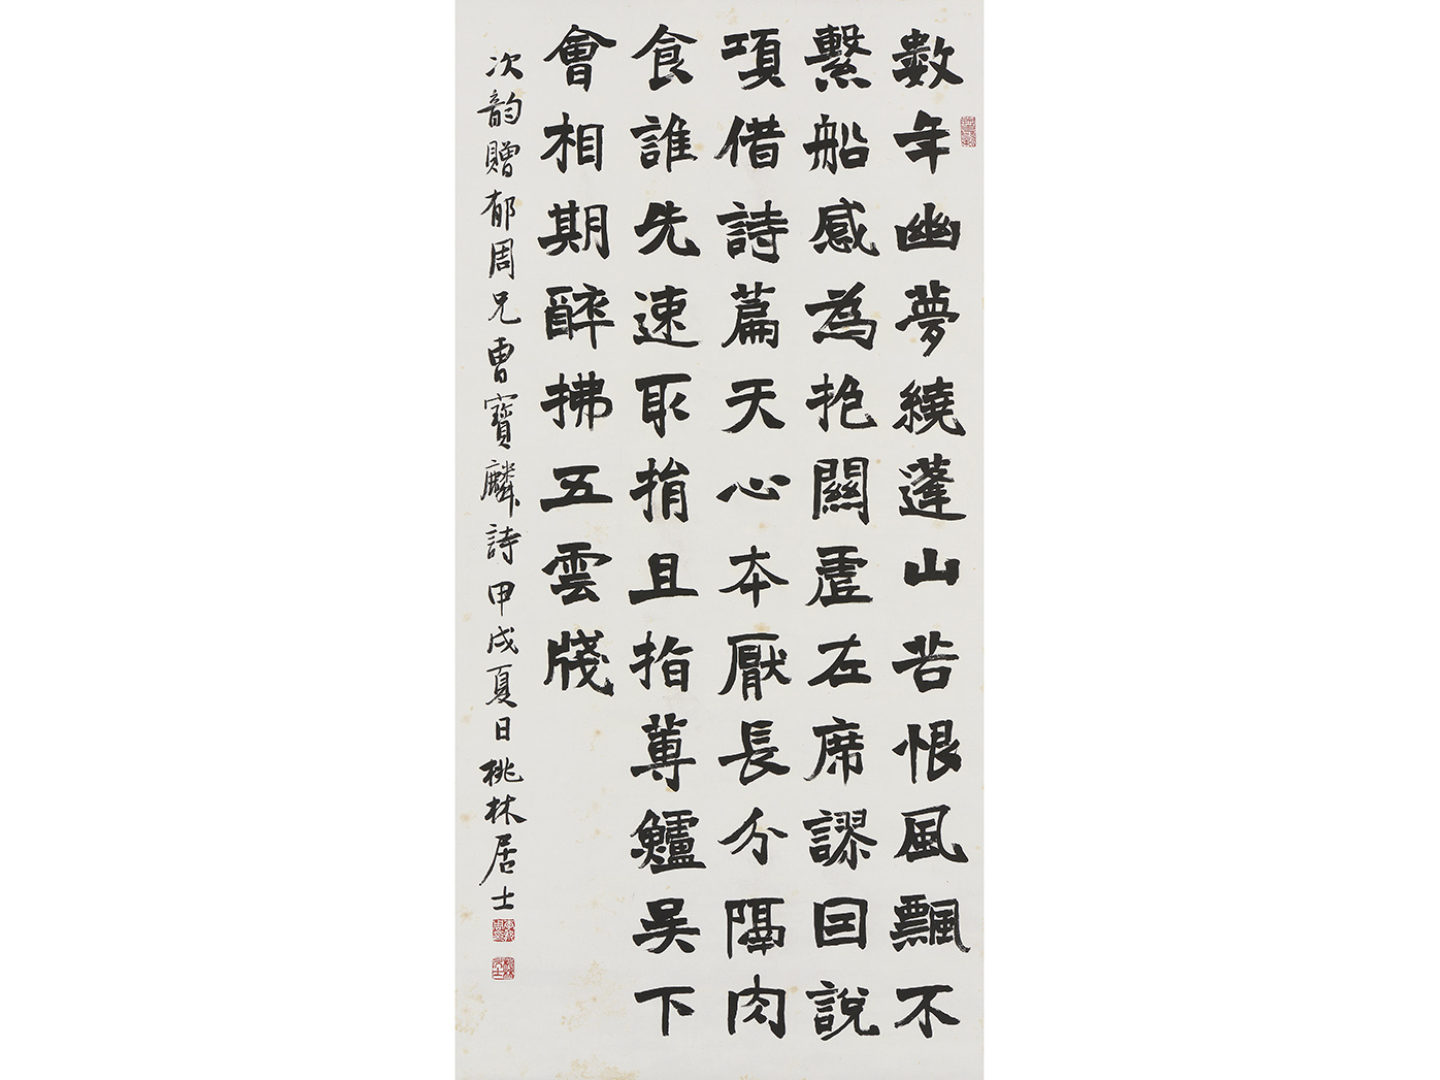 數年幽夢繞蓬山苦恨風飄不
繫船感為抱關虛左席謬回說
項借詩篇天心本厭長分隔肉
食誰先速取捐且指蓴鱸吳下
會相期醉拂五雲牋
次韵贈郁周兄曹寶麟詩甲戌夏日桃林居士